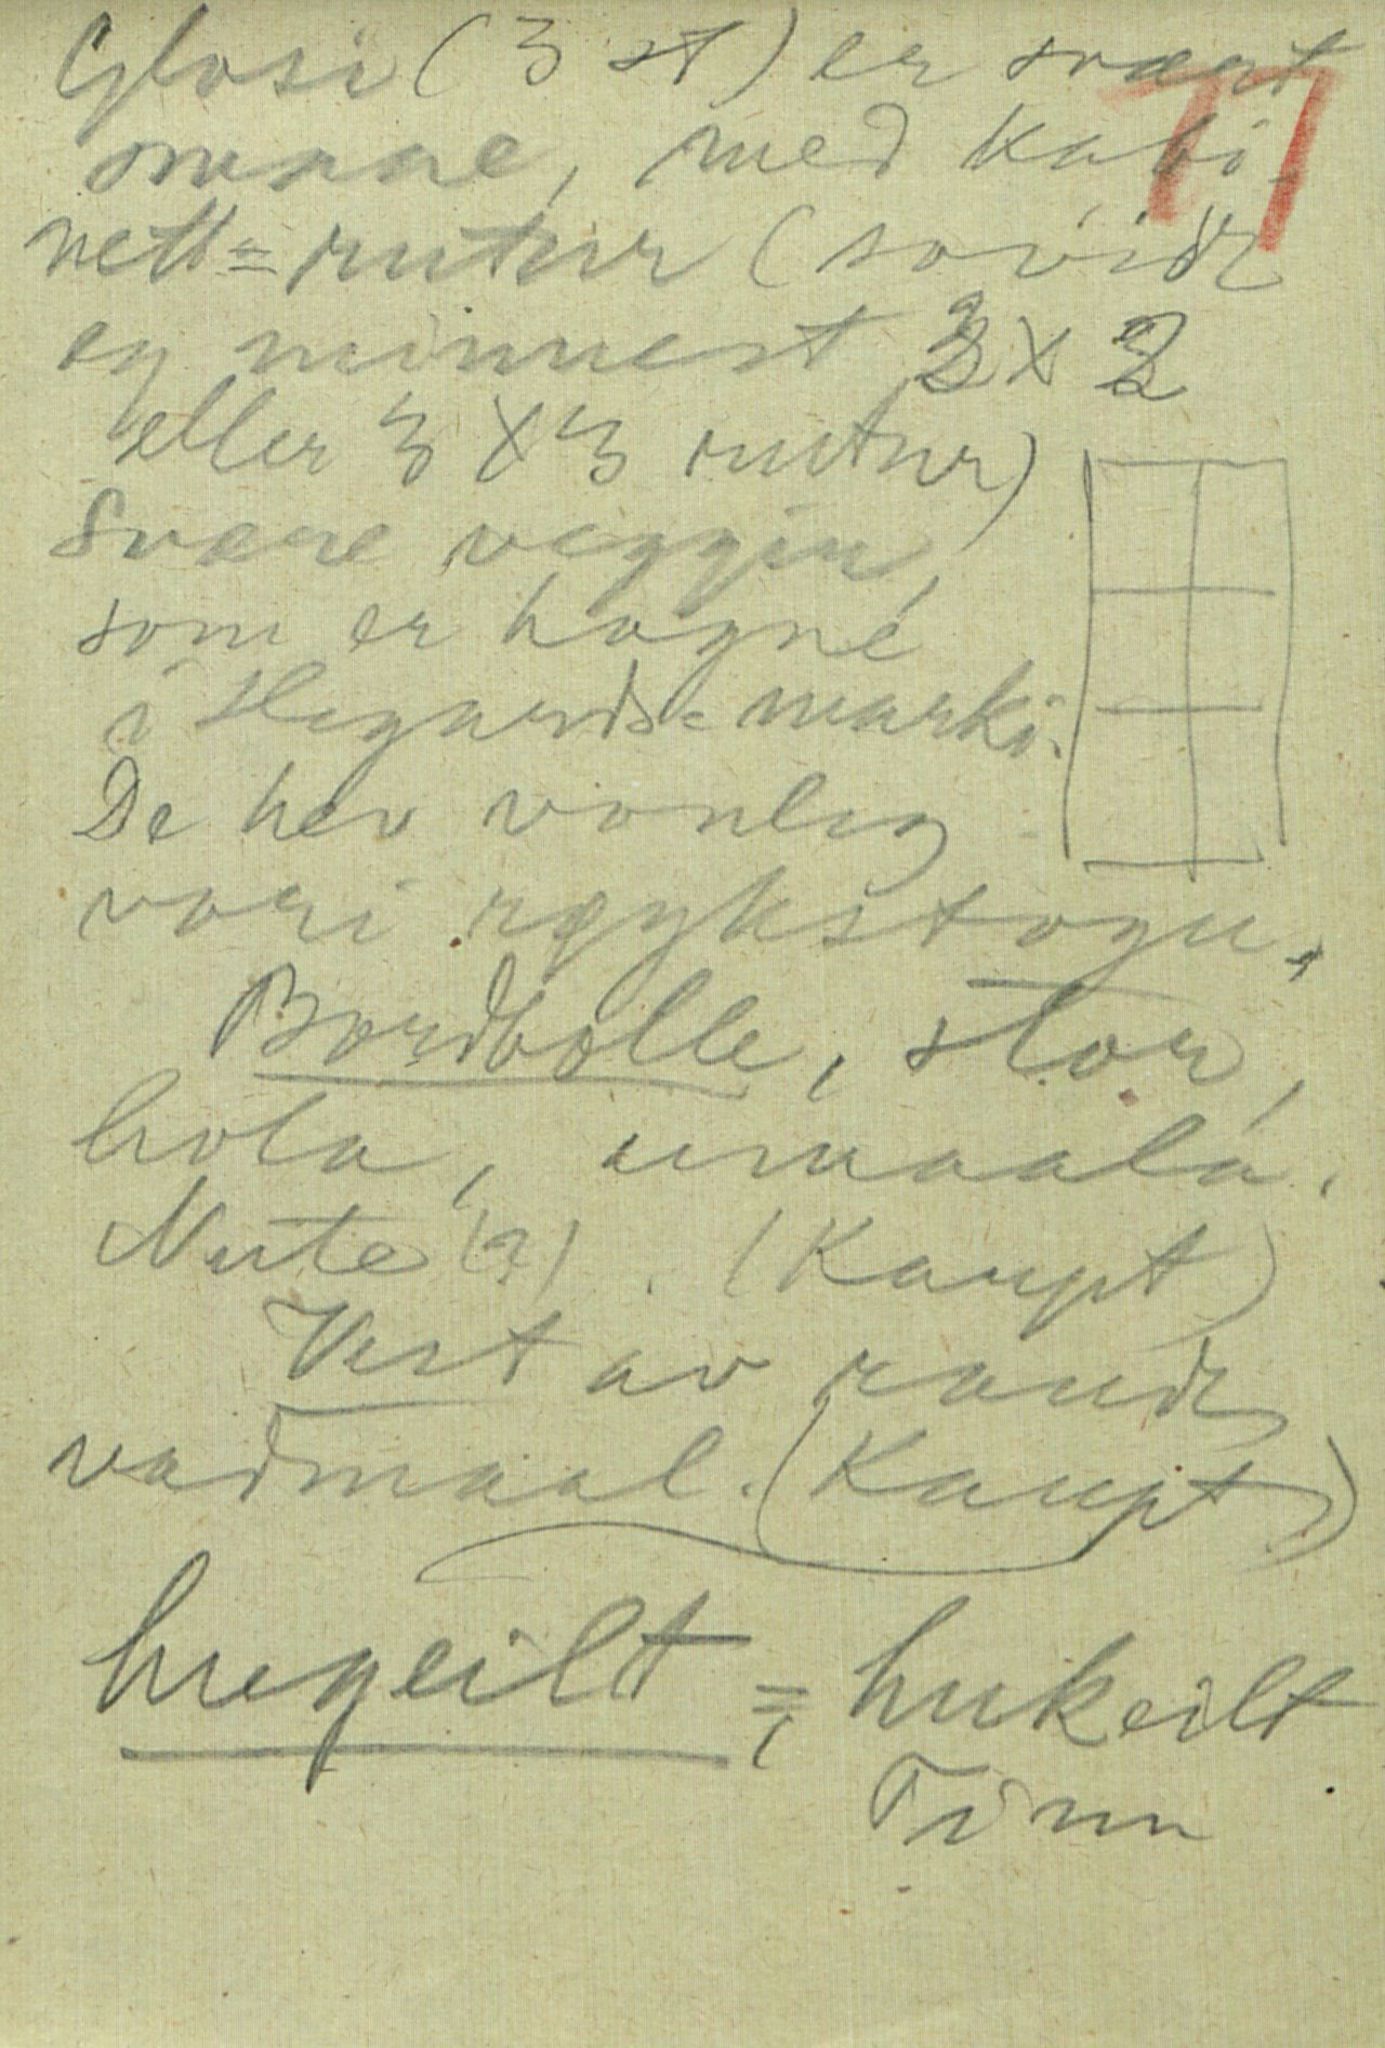 Glosi (3 st) er svært
smaae, med kabi-
nett=rutur (sovidt
eg minnest 3 x 2
eller 3 x 3 rutur)
Svære veggin,
som er hogne
i Hegards=marki.
De hev vonleg
vori røykstogu.
Bordbolle, stor,
hola, umaala.
Nute (?). (Kaupt)
Vest av raudt
vadmaal. (Kaupt)
hugeilt = hukeilt
Tinn
77